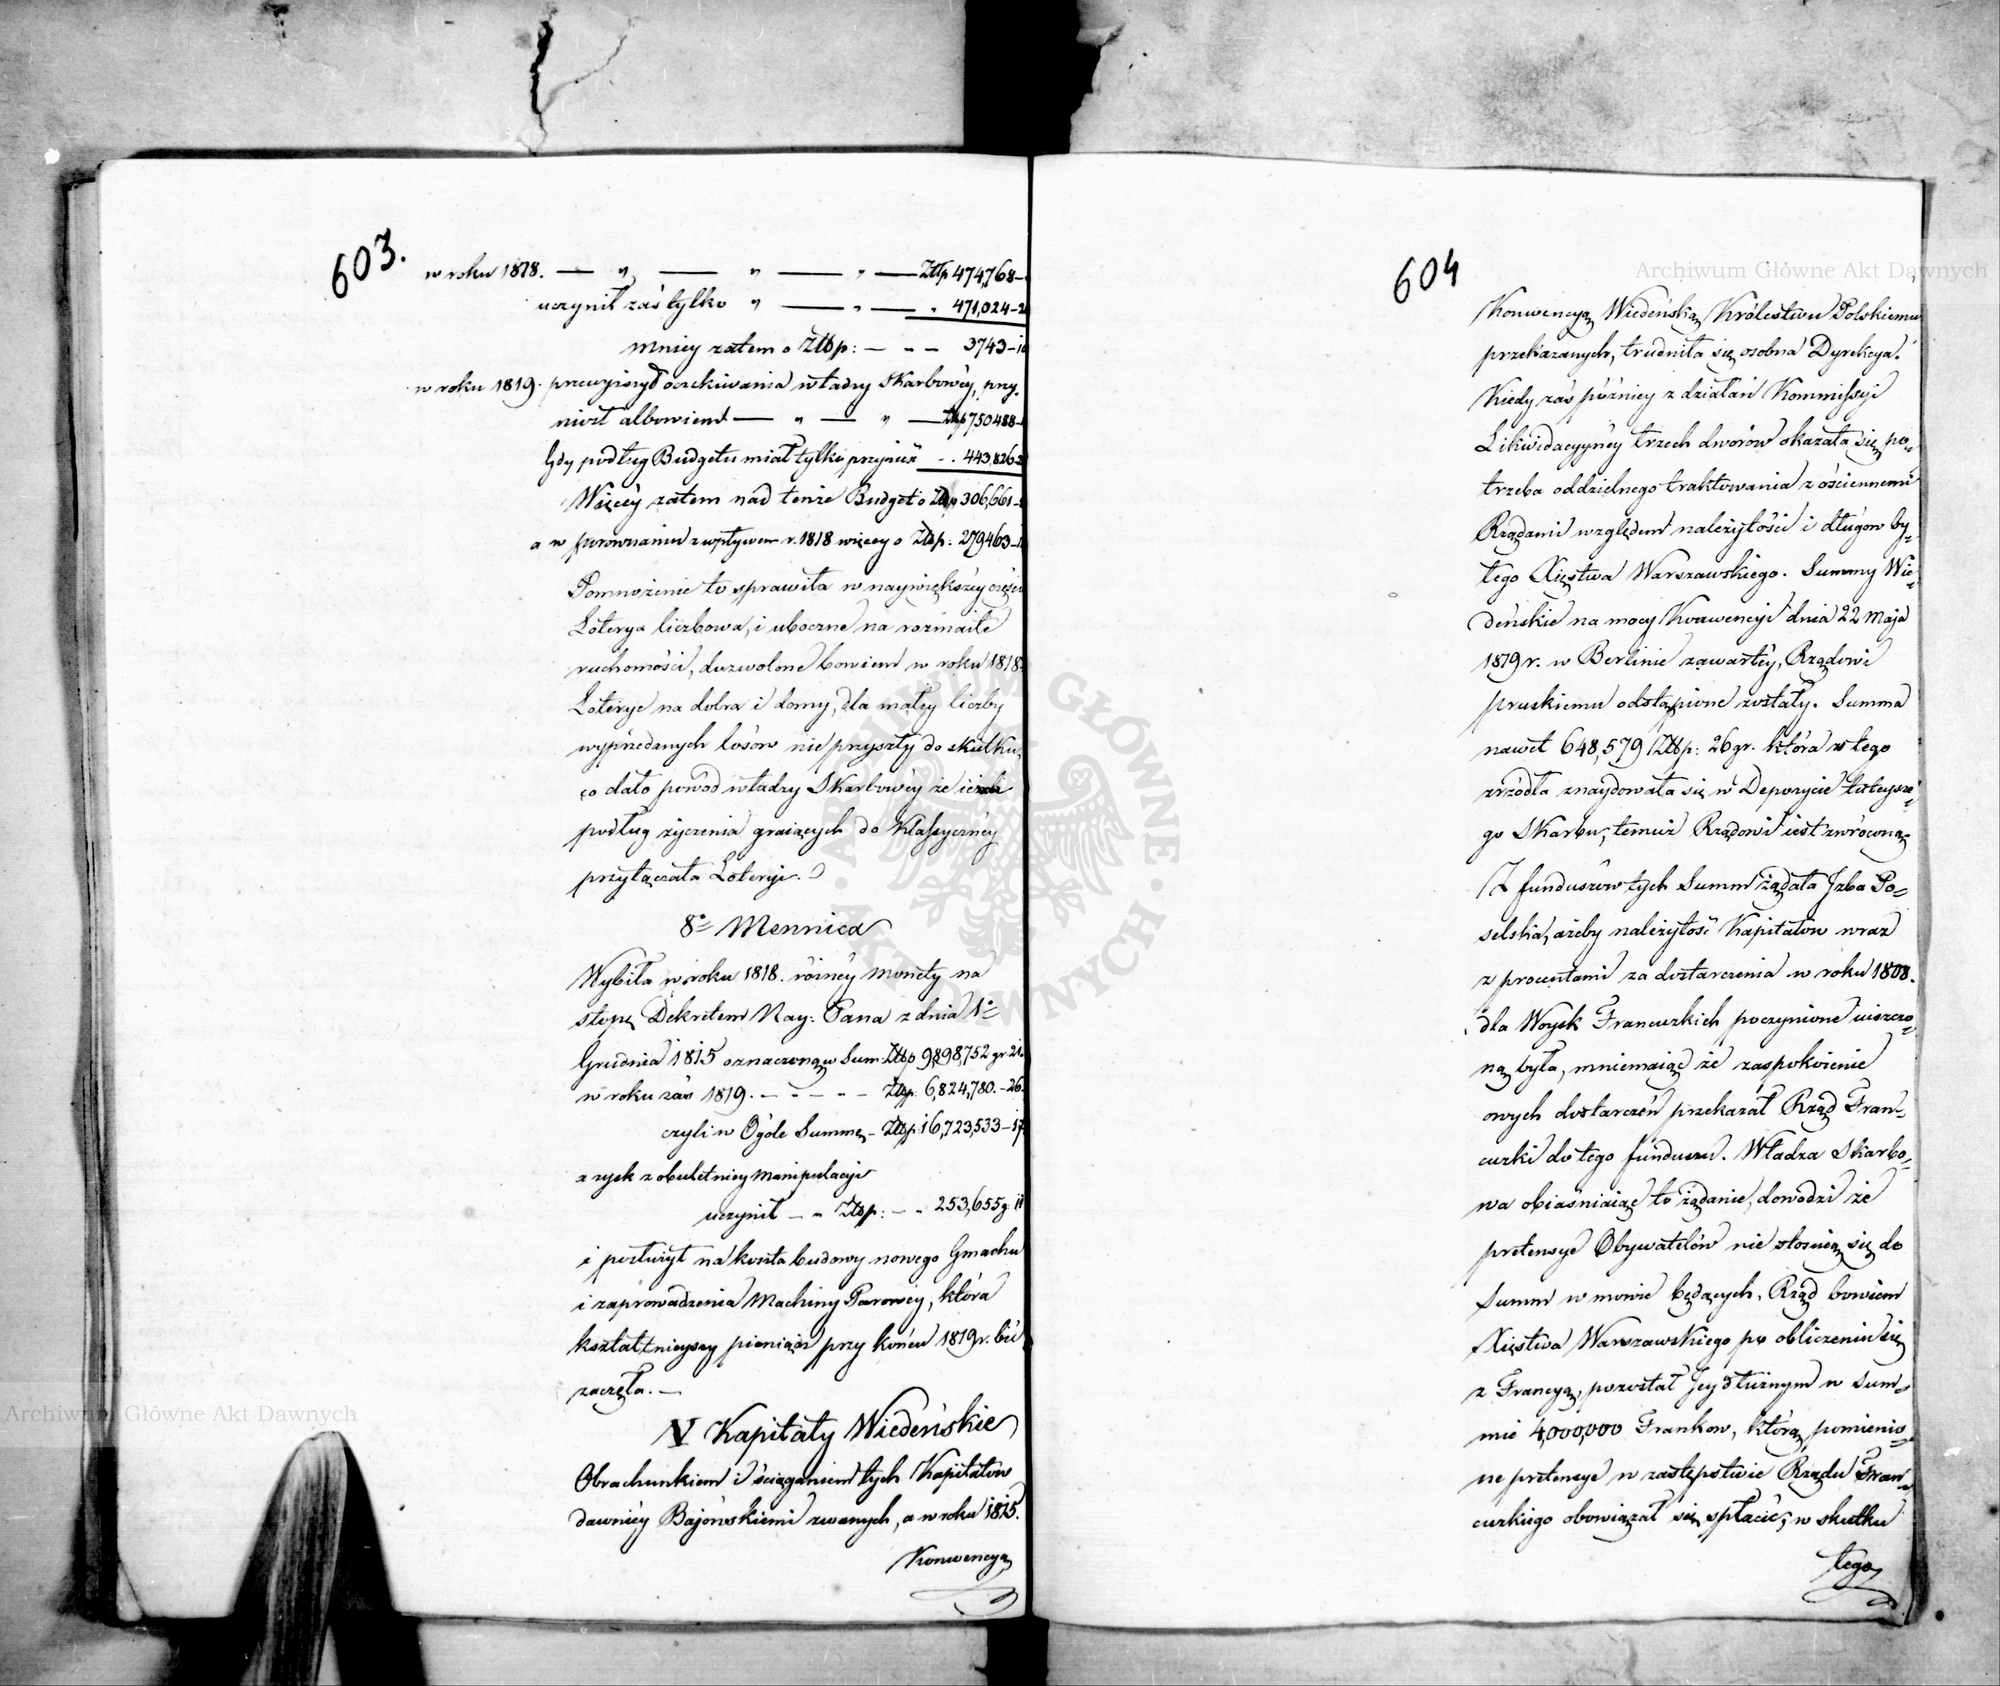 603.
w roku 1818. — „ — „ — „ — Złłp 474,768–
uczynił zaś tylko „ — „ — „ 471,024–2
mniey zatem o Złłp: — „ — 3743–
w roku 1819. przewyższył oczekiwania władzy Skarbowéy, przy-
niosł albowiem — „ — „ — Złłp 750488–
Gdy podług Budgetu miał tylko przynieść - . 443,826
Więcéy zatem nad tenże Budget o Złłp 306,661–
a w porównaniu z wpływem r. 1818 więcey o Złłp: 279463–
Pomnożenie to sprawiła w naywiększéy części
Loterya liczbowa, i uboczne na rozmaite
ruchomości, dozwolone bowiem w roku 1818.
Loterye na dobra i domy, dla małey liczby
wyprzedanych losów nie przyszły do skutku,
co dało powód władzy Skarbowéy że
podług życzenia graiących do Klassycznéy
przyłączała Loteryi.
8o Mennica
Wybiła w roku 1818. różnéy monety na
stopę Dekretem Nay: Pana z dnia 1o
Grudnia 1815 oznaczoną w Sum: Złłp 9,898,752 gr 21.
w roku zaś 1819. — - — - — Złłp. 6,824,780. –26.
czyli w Ogóle Summę – Złłp: 16,723,533–17.
a zysk z obuletniey Manipulacyi
uczynił — „ Złłp: — „ 253,655 g: 11
i posłużył na koszta budowy nowego Gmachu
i zaprowadzenia Machiny Parowéy, która
kształtnieyszy pieniądz przy końcu 1819 r. bić
zaczęła. —
V Kapitały Wiedeńskie
Obrachunkiem i ściąganiem tych Kapitałów
dawniéy Bajońskiemi zwanych, a w roku 1815.
Konwencyą
604
Konwencyą Wiedeńską Królestwu Polskiemu
przekazanych, trudniła się osobna Dyrekcya.
Kiedy zaś późniey z działań Kommissyi
Likwidacyynéy trzech dworów okazała się po-
trzeba oddzielnego traktowania z ościennemi
Rządami względem należytości i długów by-
łego Xięstwa Warszawskiego. Summy Wie-
deńskie na mocy Konwencyi dnia 22 Maja
1819 r. w Berlinie zawartéy, Rządowi
pruskiemu odstąpione zostały. Summa
nawet 648,579 Złłp: 26 gr. która z tego
źrzódła znaydowała się w Depozycie tuteysze-
go Skarbu, temuż Rządowi iest zwróconą
Z funduszów tych Summ żądała Izba Po-
selska, ażeby należytość Kapitałów wraz
z procentami za dostarczenia w roku 1808.
dla Woysk Francuzkich poczynione uiszczo-
ną była, mniemaiąc że zaspokoienie
owych dostarczeń przekazał Rząd Fran-
cuzki do tego funduszu. Władza Skarbo-
wa obiaśniaiąc to żądanie, dowodzi że
pretensye Obywatelów nie stosuią się do
Summ w mowie będących, Rząd bowiem
Xięstwa Warszawskiego po obliczeniu się
z Francyą, pozostał Jey dłużnym w Sum-
mie 4,000,000 Franków, którą pomienio-
ne pretensye w zastępstwie Rządu Fran-
cuzkiego obowiązał się spłacić, w skutku
tego
Archiwum Główne Akt Dawnych
Archiwum Główne Akt Dawnych
ARCHIWUM GŁÓWNE AKT DAWNYCH